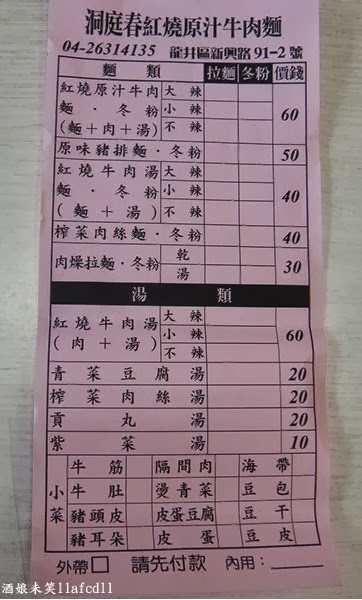 洞庭春紅燒原汁牛肉麵
04-26314135 龍井區新興路91-2號
麵類 拉麵 冬粉 價錢
紅燒原汁牛肉 大辣
麵·冬粉 小辣 60
(麵+肉+湯) 不辣
原味豬排麵·冬粉 50
紅燒牛肉湯 大辣
麵·冬粉 小辣 40
(麵+湯) 不辣
榨菜肉絲麵·冬粉 40
肉燥拉麵·冬粉 乾 30
湯
湯類
紅燒牛肉湯 大辣
(肉+湯) 小辣 60
不辣
青菜豆腐湯 20
榨菜肉絲湯 20
貢丸湯 20
紫菜湯 10
小菜
牛筋 隔間肉 海帶
牛肚 燙青菜 豆包
豬頭皮 皮蛋豆腐 豆干
豬耳朵 皮蛋 豆皮
外帶 請先付款 內用:
酒娘未笑llafcdll